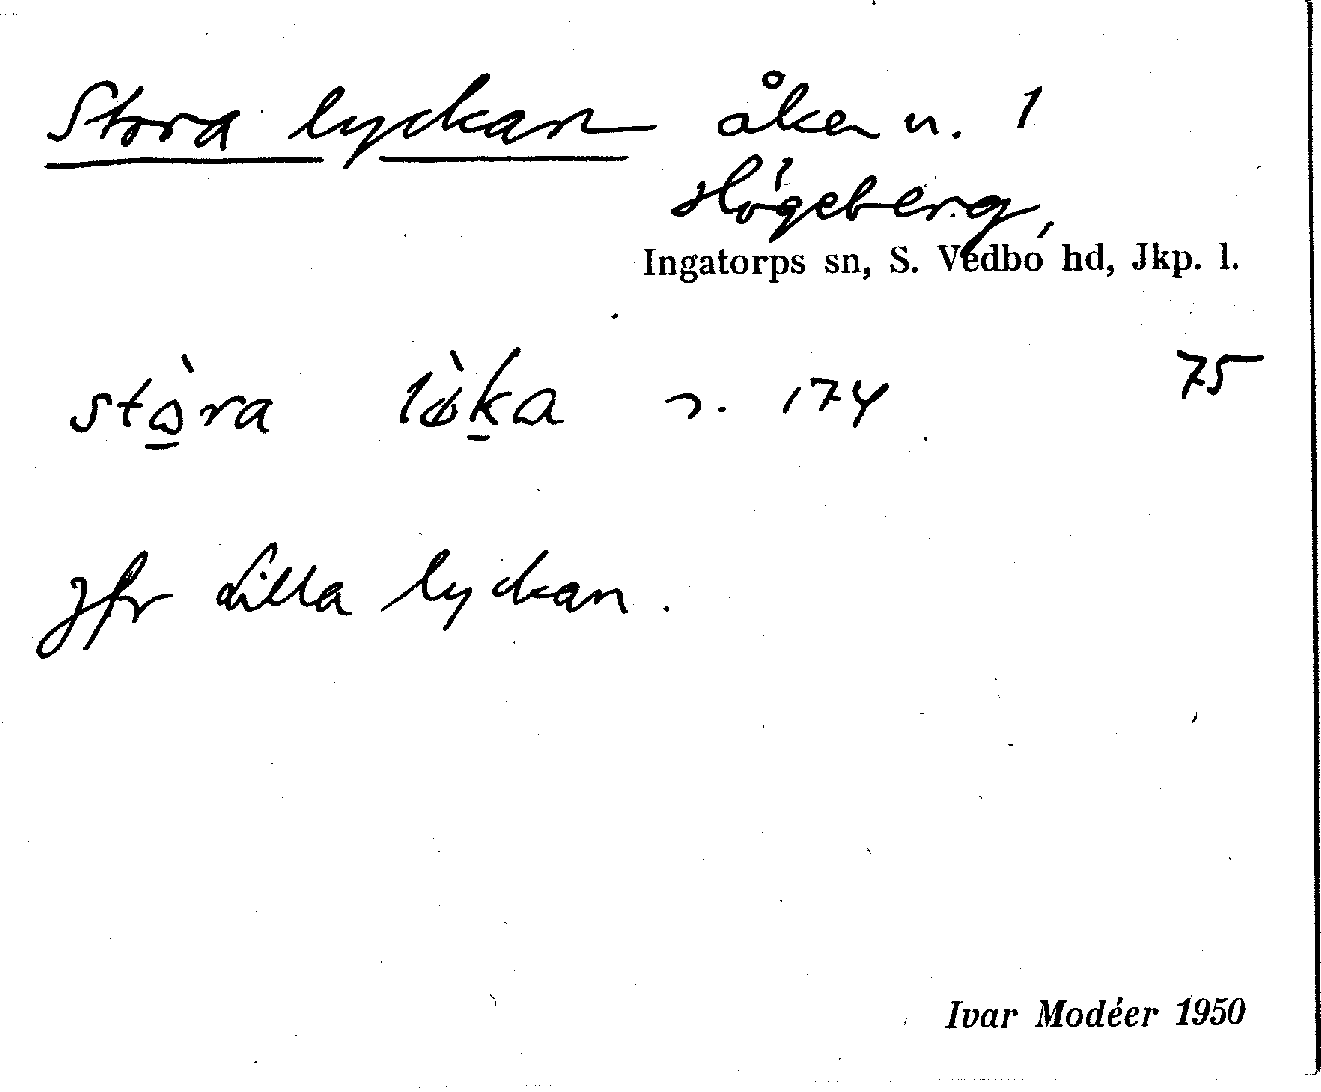 Stora lyckan åker n. 1
Högeberg,
Ingatorps sn, S. Vedbo hd, Jkp. l.
75
stò̱ra lø̀ḵa n. 174
Jfr Lilla lyckan.
Ivar Modéer 1950